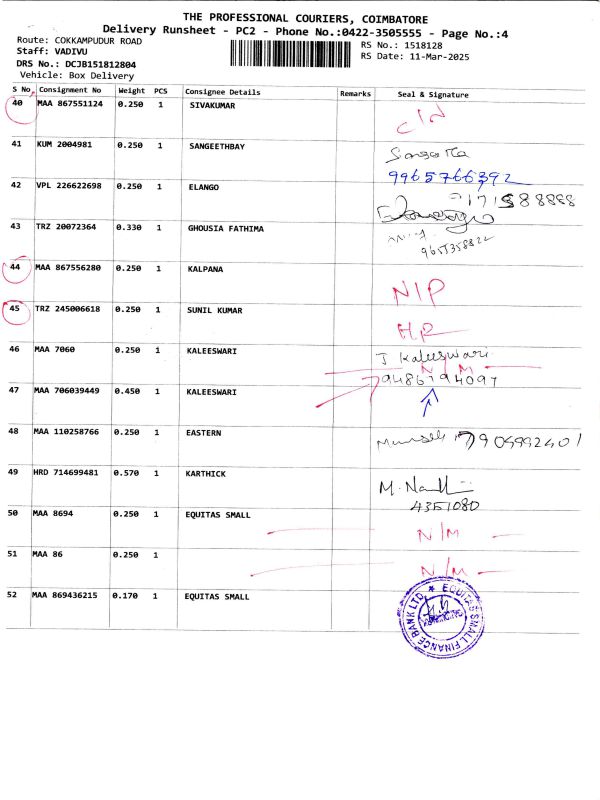 THE PROFESSIONAL COURIERS, COIMBATORE
Delivery Runsheet - PC2 - Phone No.:0422-3505555 - Page No.:4
Route: COKKAMPUDUR ROAD
Staff: VADIVU
DRS No.: DCJB151812804
Vehicle: Box Delivery
RS No.: 1518128
RS Date: 11-Mar-2025
S No. Consignment No Weight PCS Consignee Details Remarks Seal & Signature
40 MAA 867551124 0.250 1 SIVAKUMAR
41 KUM 2004981 0.250 1 SANGEETHBAY Sangeetha
9965766392
42 VPL 226622698 0.250 1 ELANGO
43 TRZ 20072364 0.330 1 GHOUSIA FATHIMA
9655358822
44 MAA 867556280 0.250 1 KALPANA N/P
45 TRZ 245006618 0.250 1 SUNIL KUMAR
46 MAA 7060 0.250 1 KALEESWARI J Kaleeswari
N/M
9486794097
47 MAA 706039449 0.450 1 KALEESWARI
48 MAA 110258766 0.250 1 EASTERN 7904992401
49 HRD 714699481 0.570 1 KARTHICK
4351080
50 MAA 8694 0.250 1 EQUITAS SMALL N/M
51 MAA 86 0.250 1 N/M
52 MAA 869436215 0.170 1 EQUITAS SMALL
EQUITAS SMALL FINANCE BANK LTD.